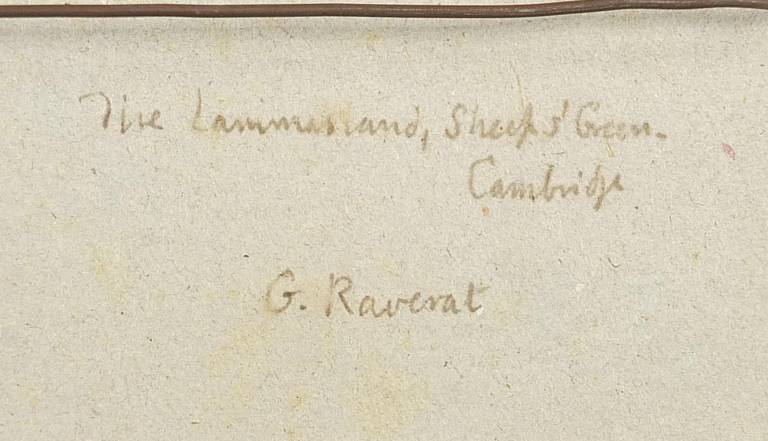 The Lammasland, Sheep's Green.
Cambridge
G. Raverat